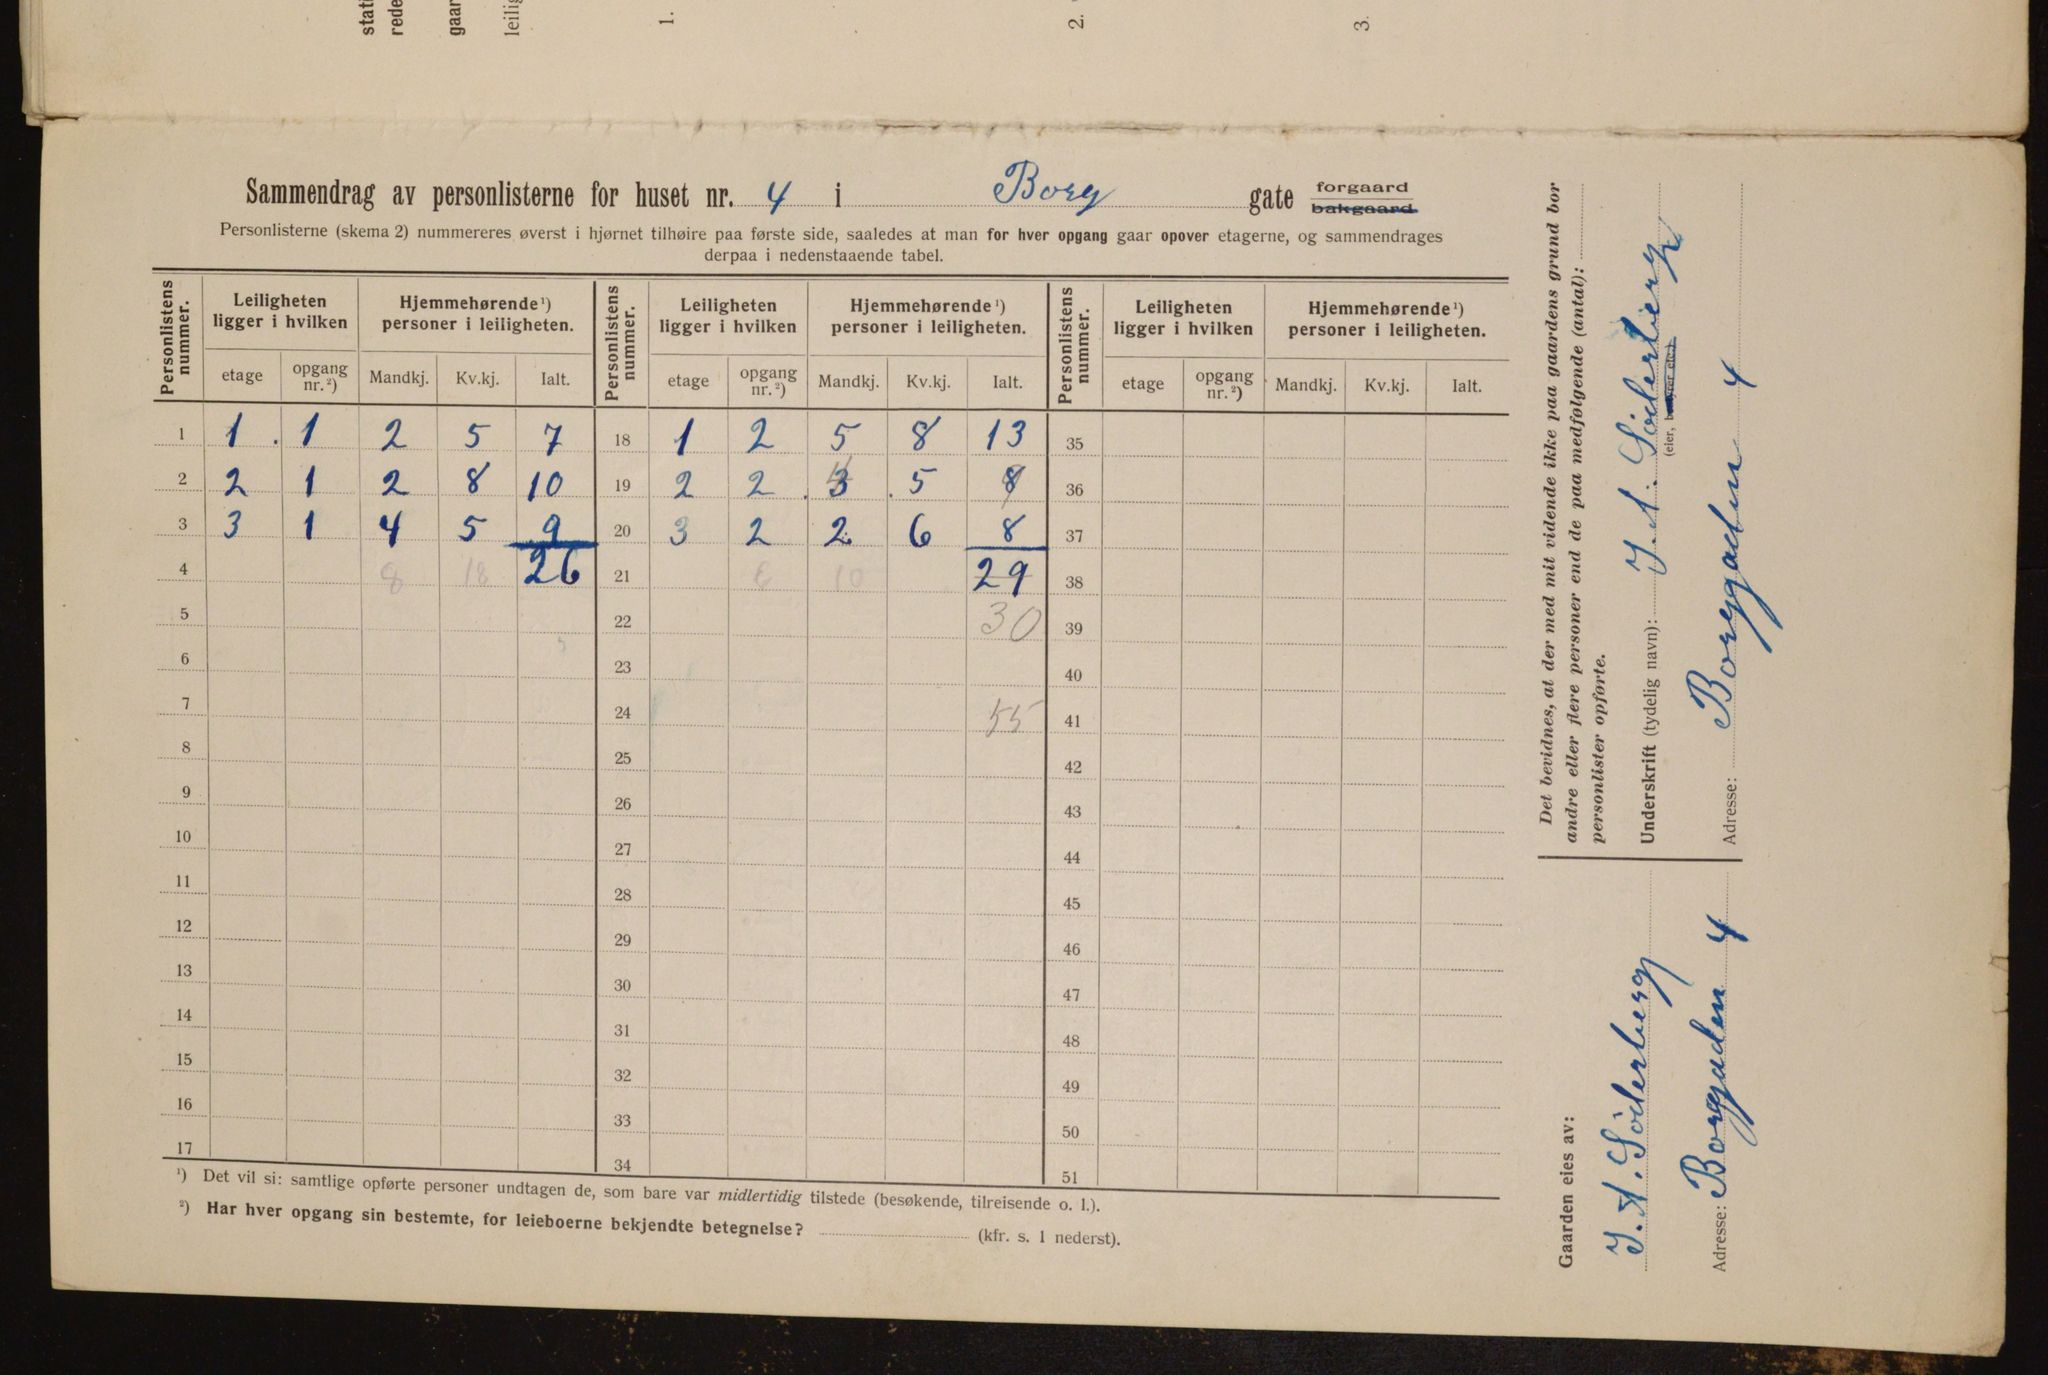 stati
rede
gaar
leilig
1.
2.
3.
Sammendrag av personlisterne for huset nr. 4 i Borg gate forgaard
bakgaard
Personlisterne (skema 2) nummereres øverst i hjørnet tilhøire paa første side, saaledes at man for hver opgang gaar opover etagerne, og sammendrages
derpaa i nedenstaaende tabel.
Personlistens nummer. Leiligheten ligger i hvilken Hjemmehørende¹) personer i leiligheten. Personlistens nummer. Leiligheten ligger i hvilken Hjemmehørende¹) personer i leiligheten. Personlistens nummer. Leiligheten ligger i hvilken Hjemmehørende¹) personer i leiligheten.
etage opgang nr.²) Mandkj. Kv.kj. Ialt. etage opgang nr.²) Mandkj. Kv.kj. Ialt. etage opgang nr.²) Mandkj. Kv.kj. Ialt.
1 1 . 1 2 5 7 18 1 2 5 8 13 35
2 2 1 2 8 10 19 2 2 . 3 . 5 8 36
3 3 1 4 5 9 20 3 2 2 6 8 37
4 8 18 26 21 10 29 38
5 22 30 39
6 23 40
7 24 55 41
8 25 42
9 26 43
10 27 44
11 28 45
12 29 46
13 30 47
14 31 48
15 32 49
16 33 50
17 34 51
¹) Det vil si: samtlige opførte personer undtagen de, som bare var midlertidig tilstede (besøkende, tilreisende o. l.).
²) Har hver opgang sin bestemte, for leieboerne bekjendte betegnelse? (kfr. s. 1 nederst).
Det bevidnes, at der med mit vidende ikke paa gaardens grund bor
andre eller flere personer end de paa medfølgende (antal):
personlister opførte.
Underskrift (tydelig navn): J. A. Söderberg
(eier, bestyrer etc.)
Adresse: Borggaden 4
Gaarden eies av:
J. A. Söderberg
Adresse: Borggaden 4